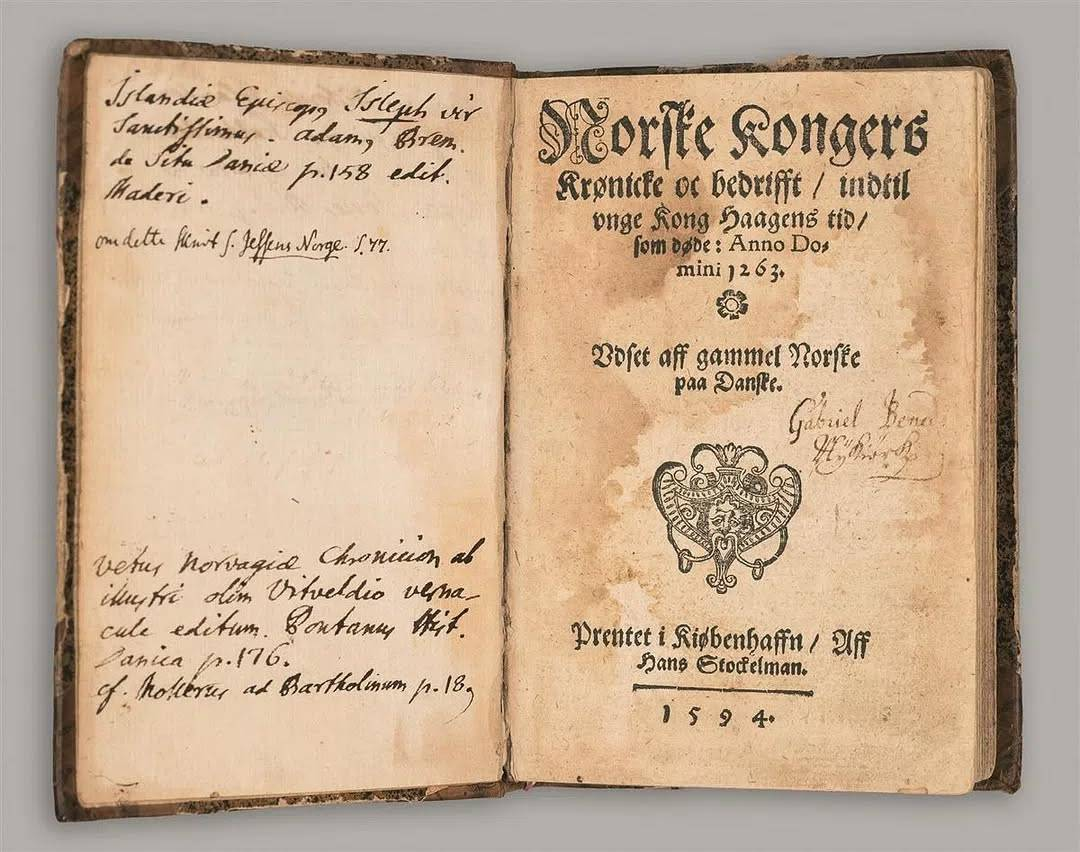 Islandiæ Episcopq Isleph vir
Sanctissimus. Adamq Brem.
de Situ Daniæ p.158 edit.
Maderi.
om dette Skrivt s. Jessens Norge. S. 77.
vetus Norvagiæ Chronicion ab
illustri olim Vitveldio verna-
cule editum. Pontanus Hist.
Danica p.176.
cf. Mollerus ad Bartholinum p. 18.
Norske Kongers
Krønicke oc bedrifft / indtil
vnge Kong Haagens tid /
som døde: Anno Do⸗
mini 1263.
Vdset aff gammel Norske
paa Danske.
Gabriel
Prentet i Kiøbenhaffn / Aff
Hans Stockelman.
1594.